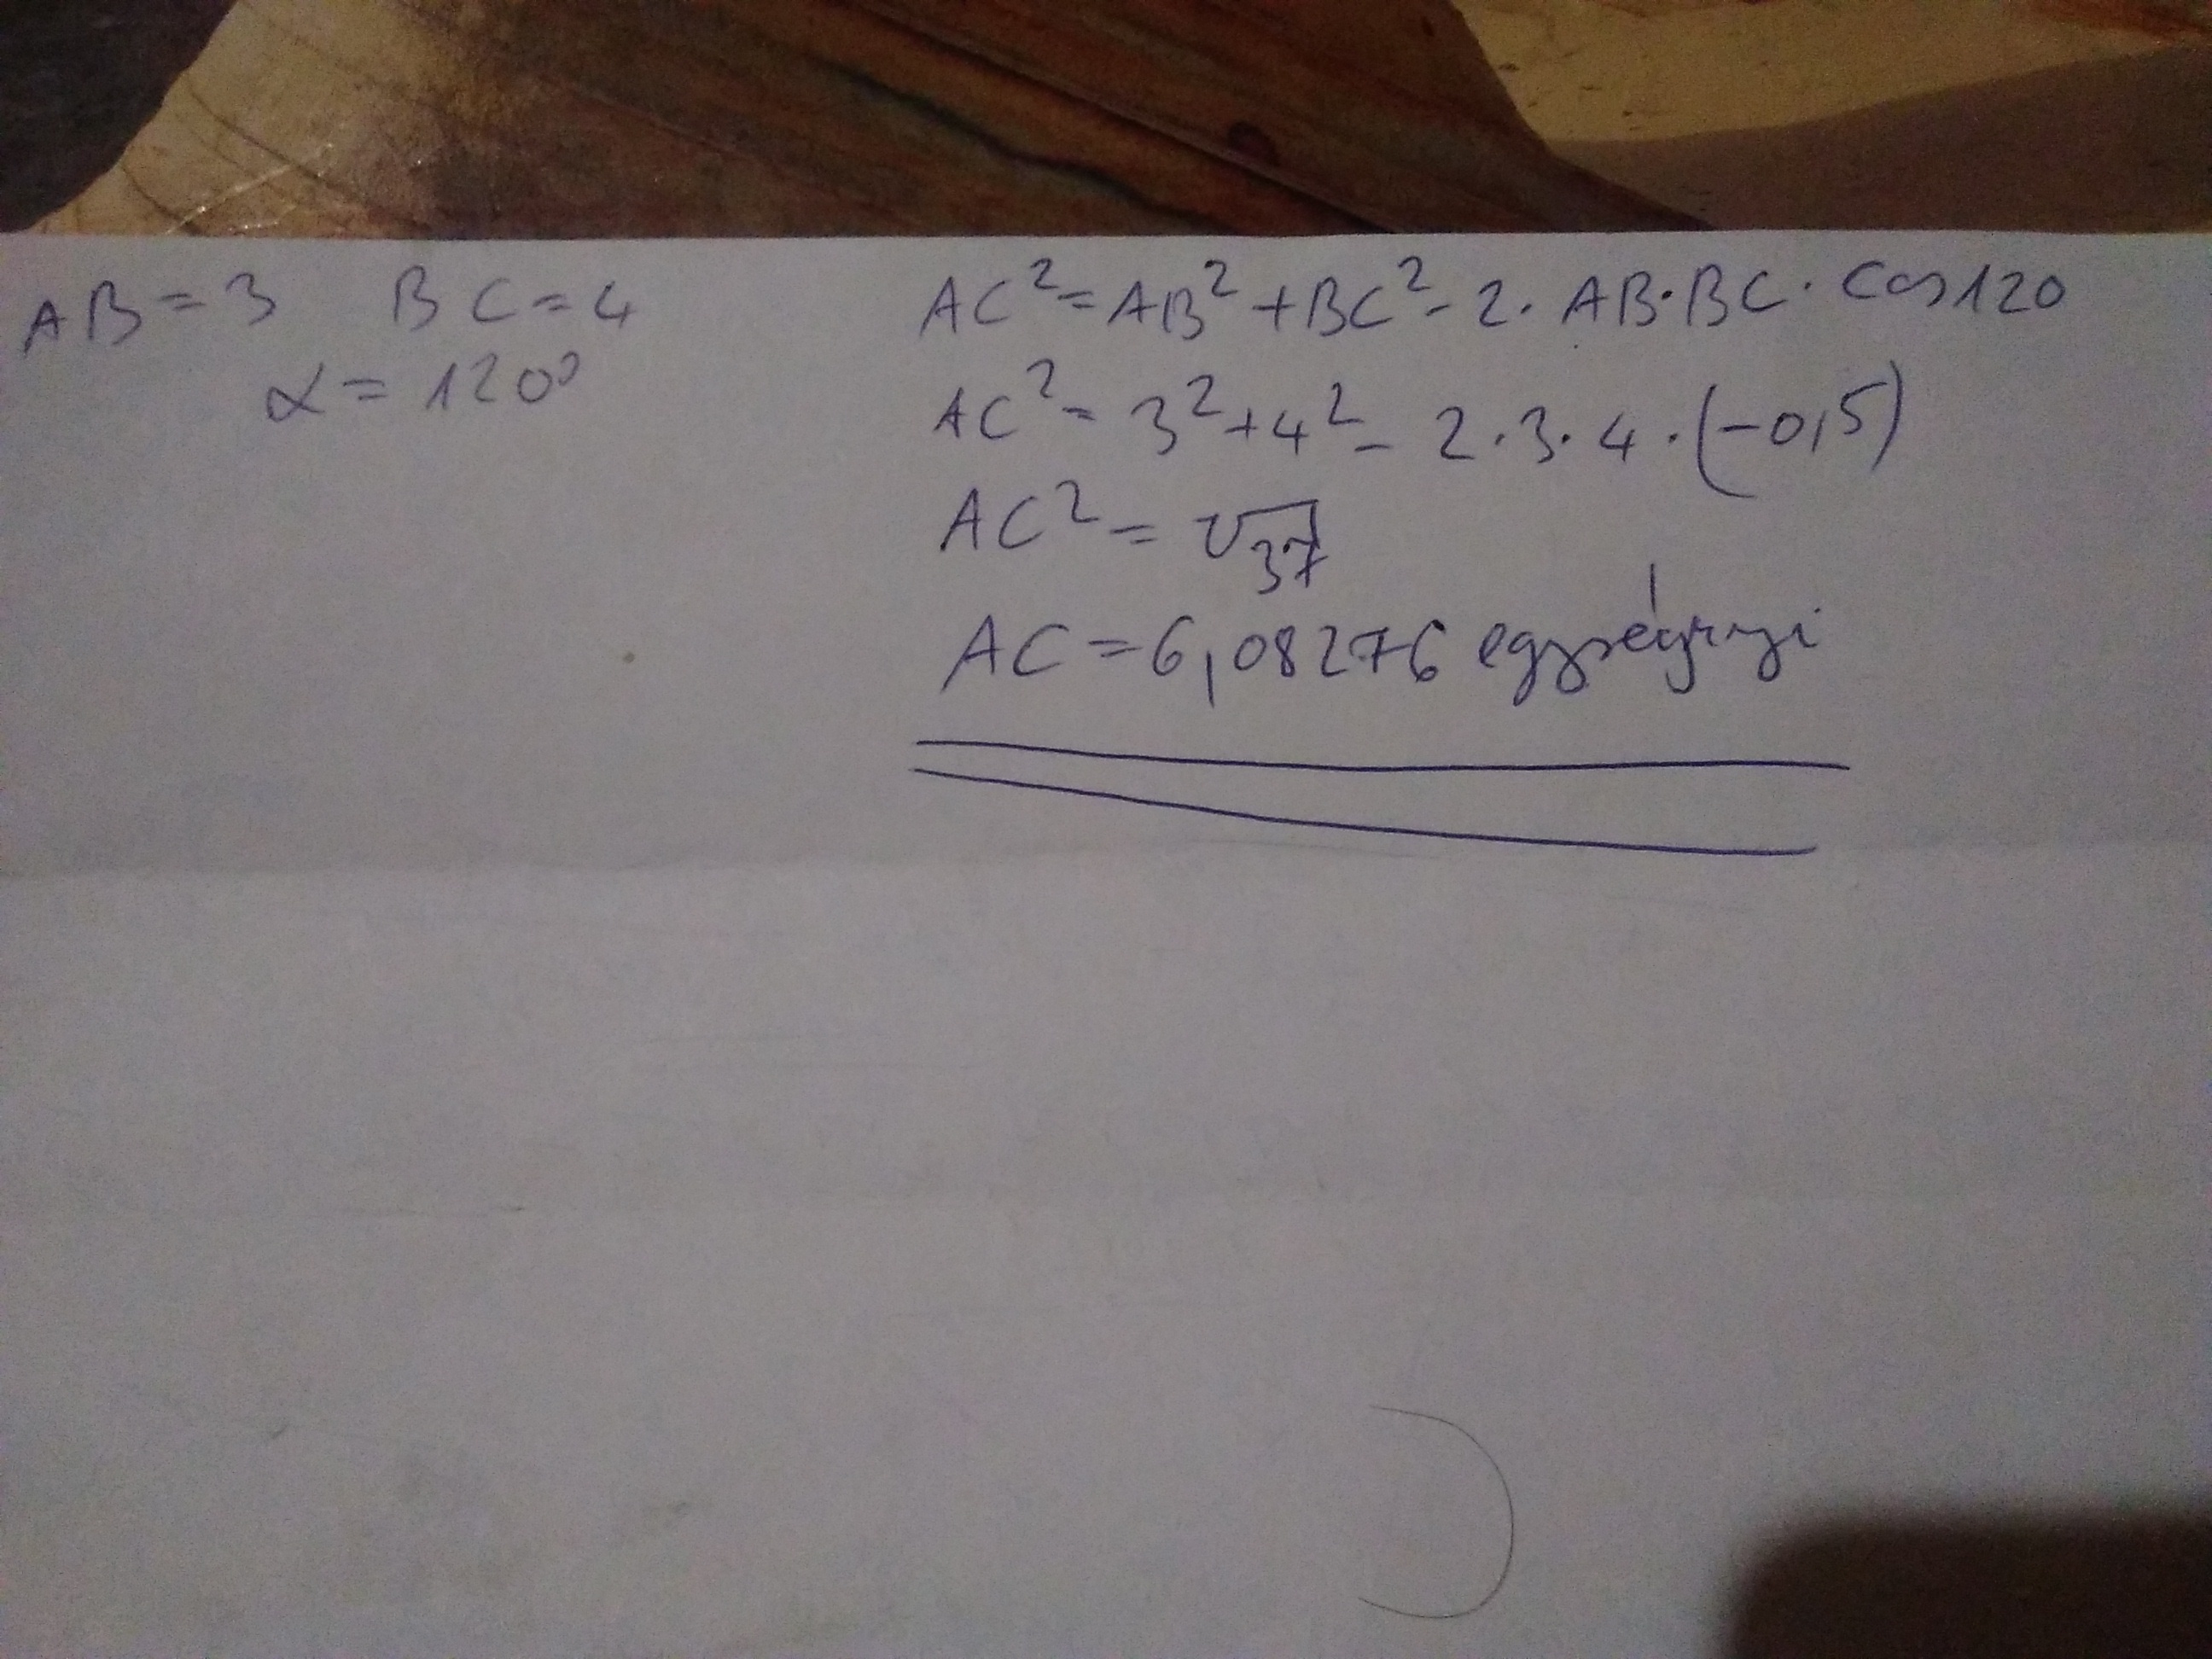 AB = 3 BC = 4
α = 120°
AC² = AB² + BC² - 2 · AB · BC · cos 120
AC² = 3² + 4² - 2 · 3 · 4 · (-0,5)
AC² = √37
AC = 6,08276 egységnyi